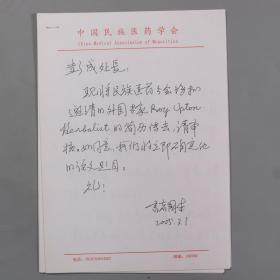 中国民族医药学会
China Medical Association of Minorities
彭成处长：
现将民族医药学会拟
邀请的外国专家Roy Upton
Herbalist的简历传去，请审
核。如同意，我们将立即确定他
的论文题目。
礼！
2005.7.1